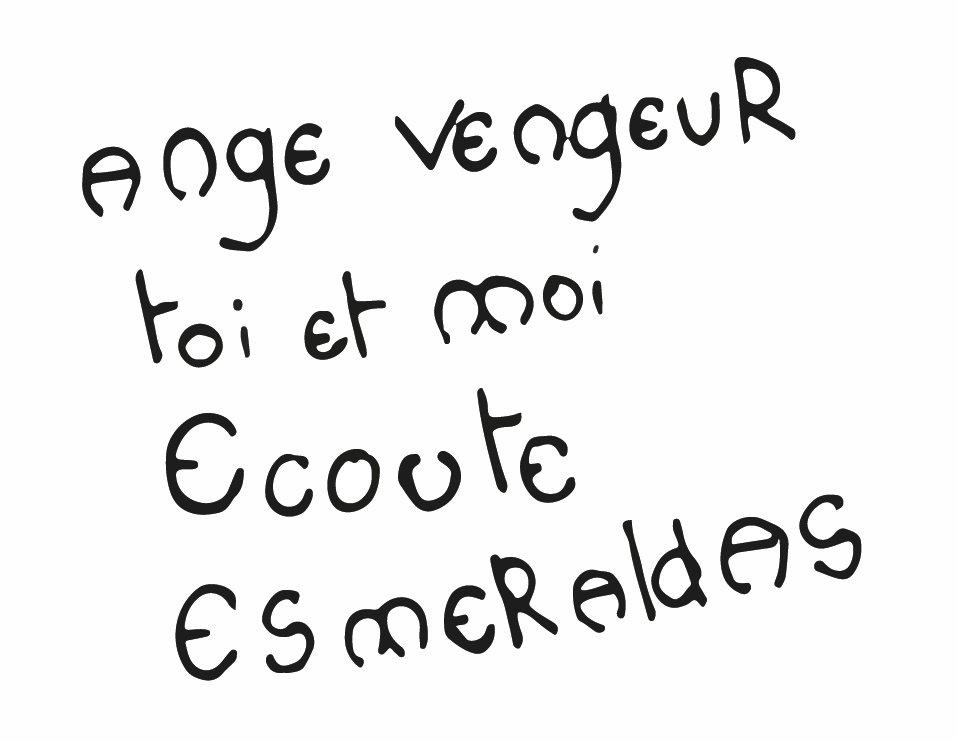 Ange vengeur
toi et moi
Ecoute
Esmeraldas